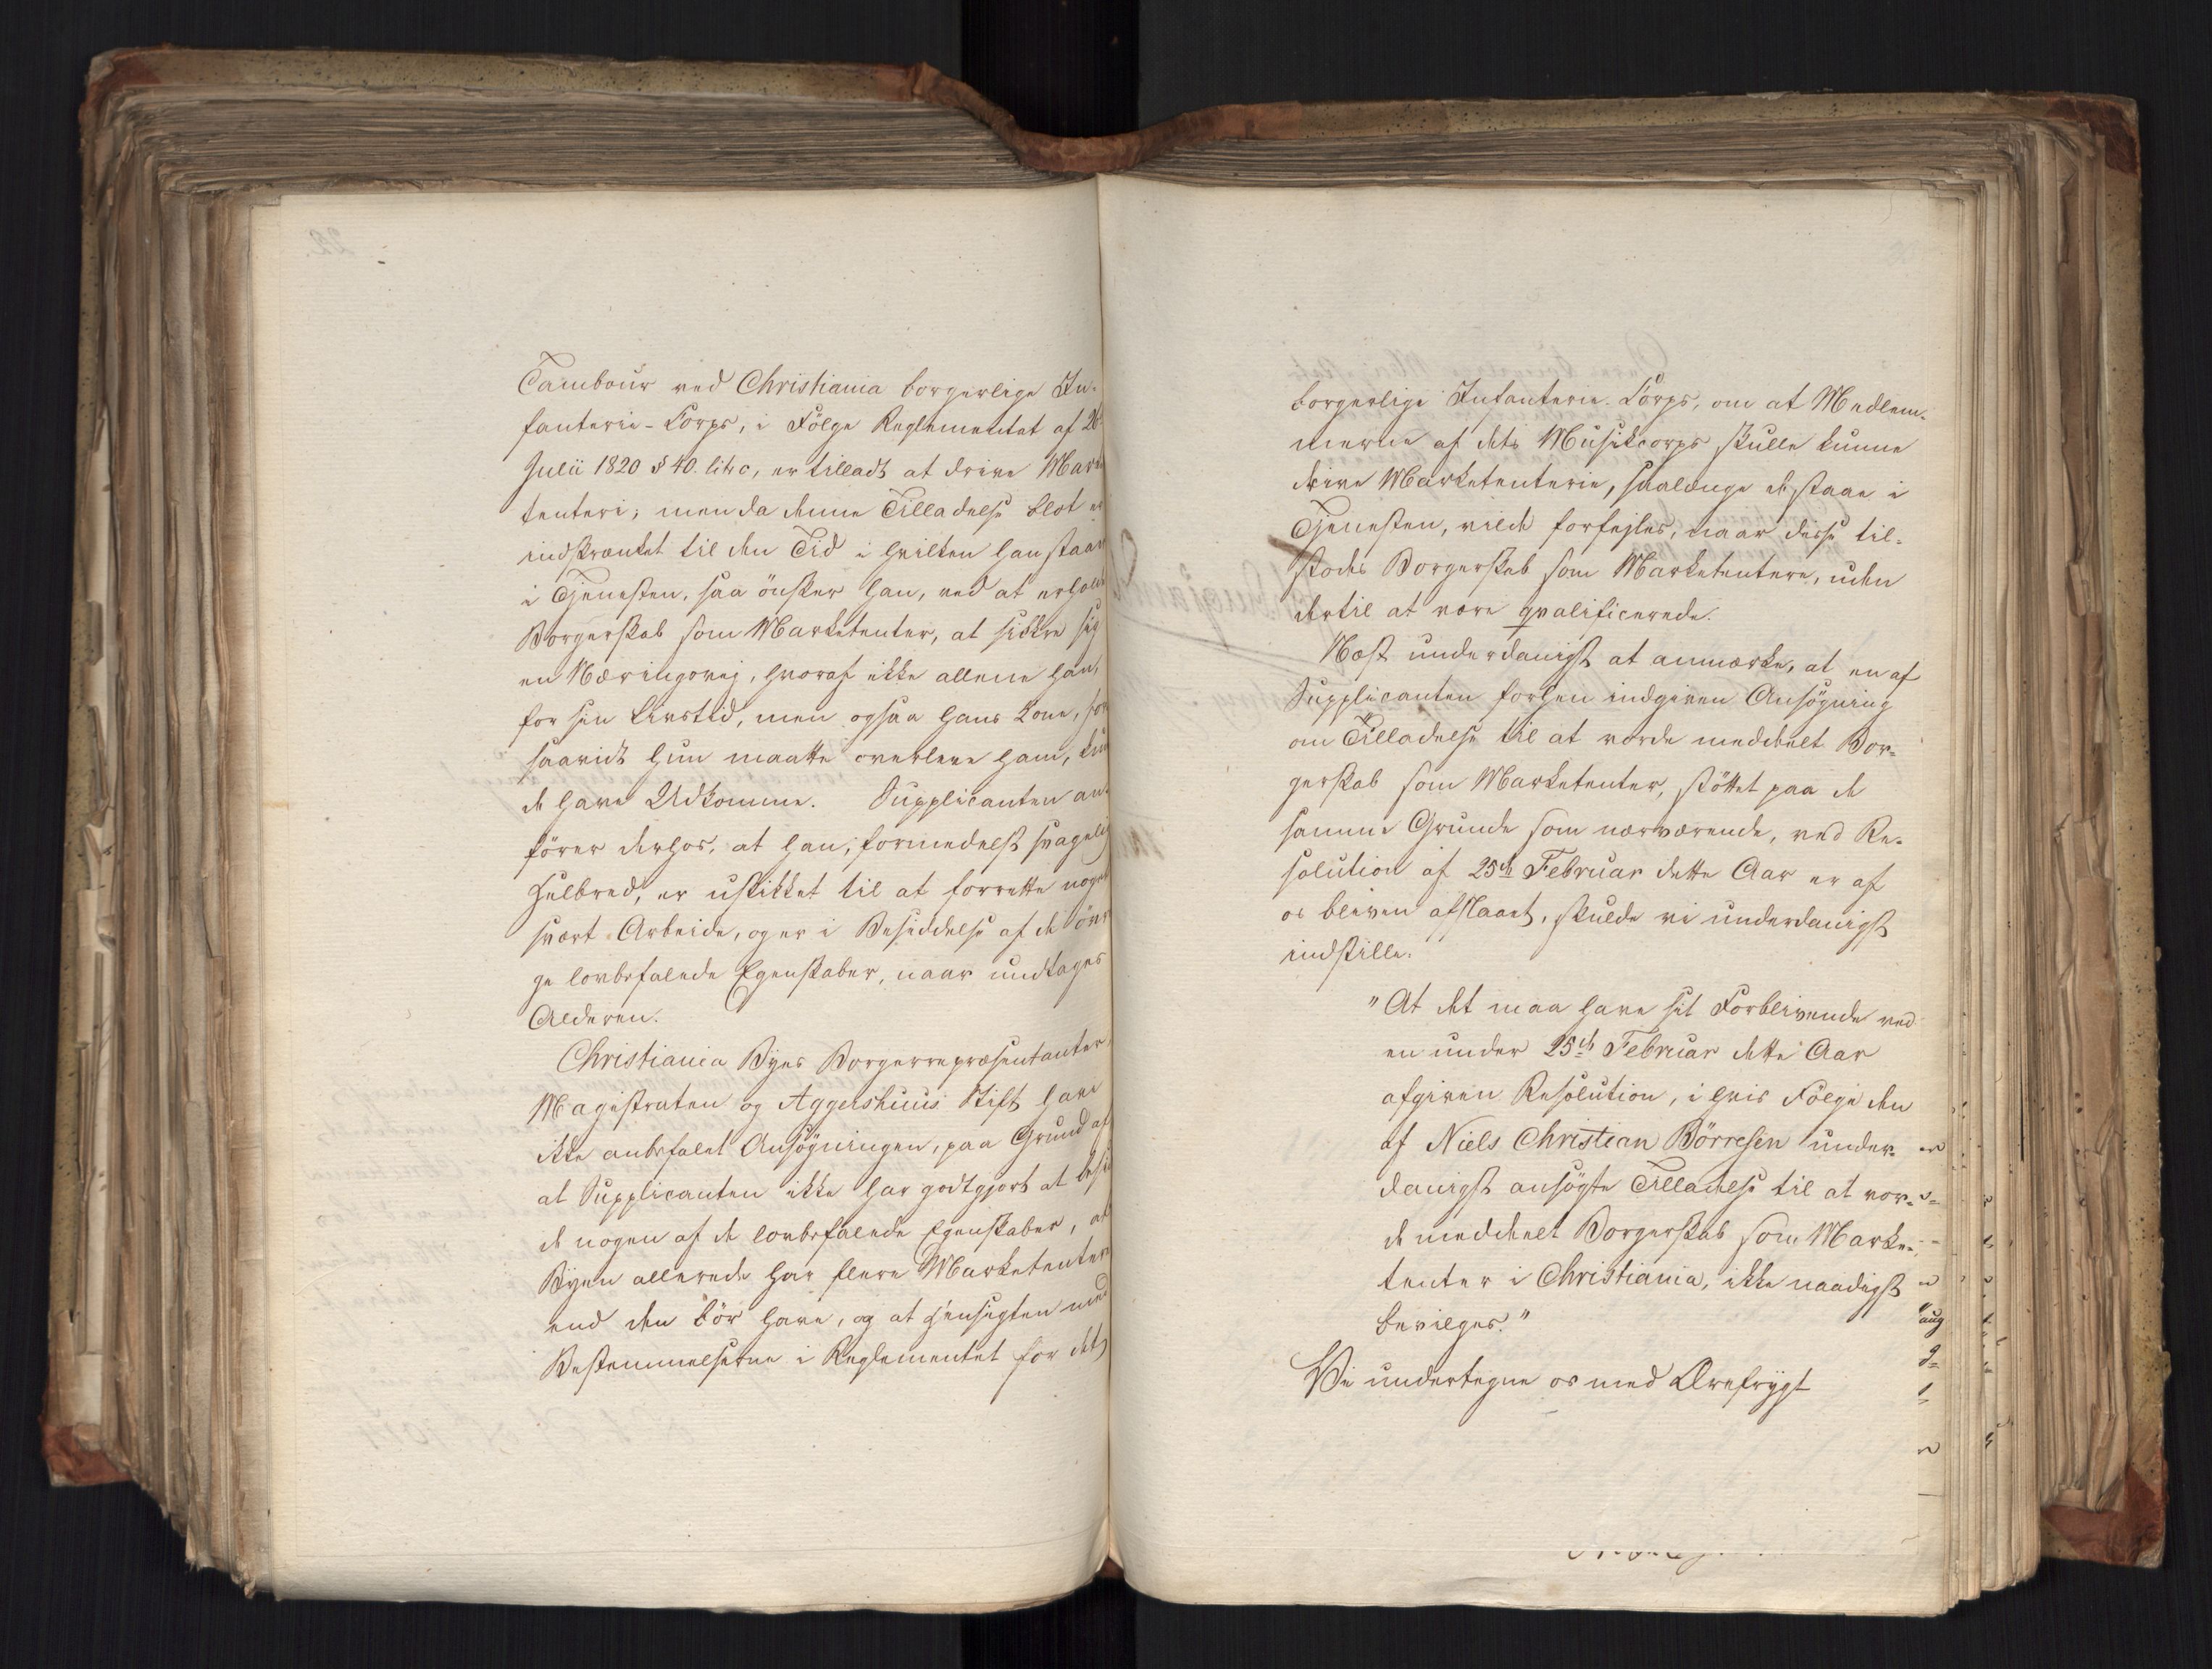 Tambour ved Christiania borgerlige In-
fanterie-Corps, i Fölge Reglementet af 26
Julii 1820 § 40. litr c, er tilladt at drive Marke
tenteri; men da denne Tilladelse blot er
indskrænket til den Tid i hvilken han staar
i Tjenesten, saa önsker han, ved at erholde
Borgerskab som Marketenter, at sikkre sig
en Næringsvei, hvoraf ikke allene han,
for sin Livstid, men ogsaa hans Kone, for
saavidt hun maatte overleve ham, kun
de have Udkomme. Supplicanten an-
förer derhos, at han, formedelst svagelig
Helbred, er uskikket til at forrette noget
svært Arbeide, og er i Besiddelse af de övri
ge lovbefalede Egenskaber, naar undtages
Alderen.
Christiania Byes Borgerrepræsentanter,
Magistraten og Aggershuus Stift have
ikke anbefalet Ansögningen, paa Grund af
at Supplicanten ikke har godtgjort at besid
de nogen af de lovbefalede Egenskaber, at
Byen allerede har flere Marketentere
end den bör have, og at Hensigten med
Bestemmelserne i Reglementet for det
borgerlige Infanterie-Corps, om at Medlem-
merne af dets Musikcorps skulle kunne
drive Marketenterie, saalænge de staae i
Tjenesten, vilde forfejles, naar disse til-
stodes Borgerskab som Marketentere, uden
dertil at være qvalificerede.
Næst underdanigst at anmærke, at en af
Supplicanten forhen indgiven Ansögning
om Tilladelse til at vorde meddeelt Bor-
gerskab som Marketenter, stöttet paa de
samme Grunde som nærværende, ved Re-
solution af 25de Februar dette Aar er af
os bleven afslaaet, skulde vi underdanigst
indstille:
"At det maa have sit Forblivende ved
en under 25de Februar dette Aar
afgiven Resolution, i hvis Fölge den
af Niels Christian Börresen under-
danigst ansögte Tilladelse til at vor-
de meddeelt Borgerskab som Marke-
tenter i Christiania, ikke naadigst
bevilges."
Vi undertegne os med Ærefrygt